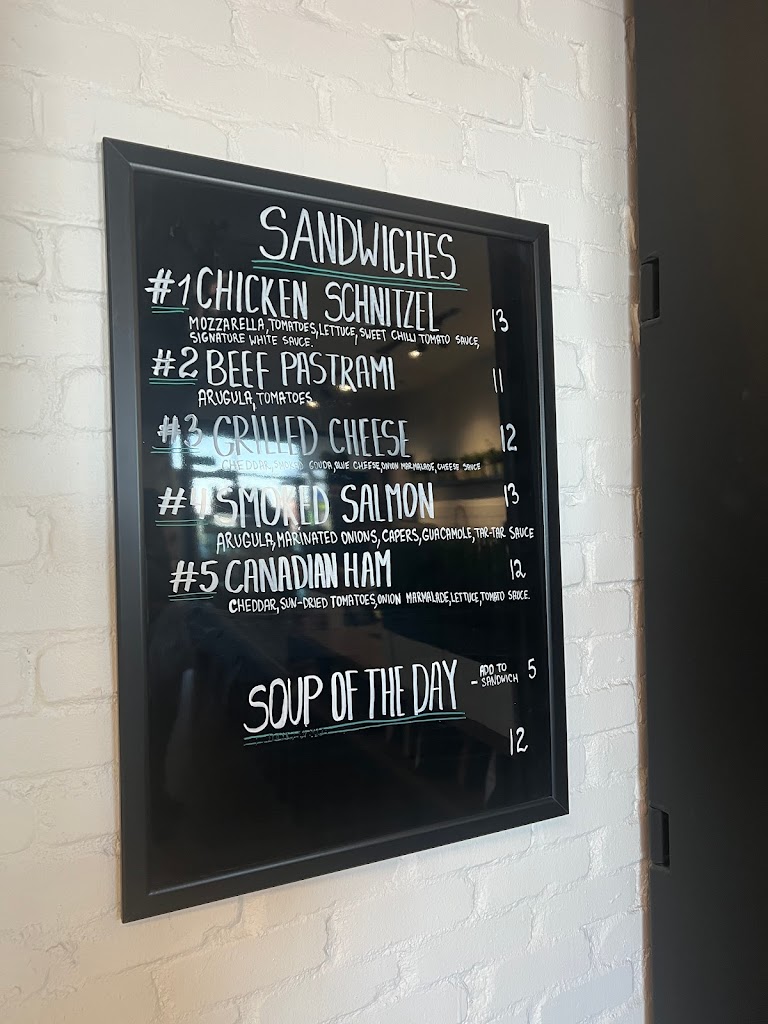 SANDWICHES
#1 CHICKEN SCHNITZEL 13
MOZZARELLA, TOMATOES, LETTUCE, SWEET CHILLI TOMATO SAUCE,
SIGNATURE WHITE SAUCE.
#2 BEEF PASTRAMI 11
ARUGULA, TOMATOES
#3 GRILLED CHEESE 12
CHEDDAR, SMOKED GOUDA, BLUE CHEESE, ONION MARMALADE, CHEESE SAUCE
#4 SMOKED SALMON 13
ARUGULA, MARINATED ONIONS, CAPERS, GUACAMOLE, TAR-TAR SAUCE
#5 CANADIAN HAM 12
CHEDDAR, SUN-DRIED TOMATOES, ONION MARMALADE, LETTUCE, TOMATO SAUCE.
SOUP OF THE DAY - ADD TO SANDWICH 5
12